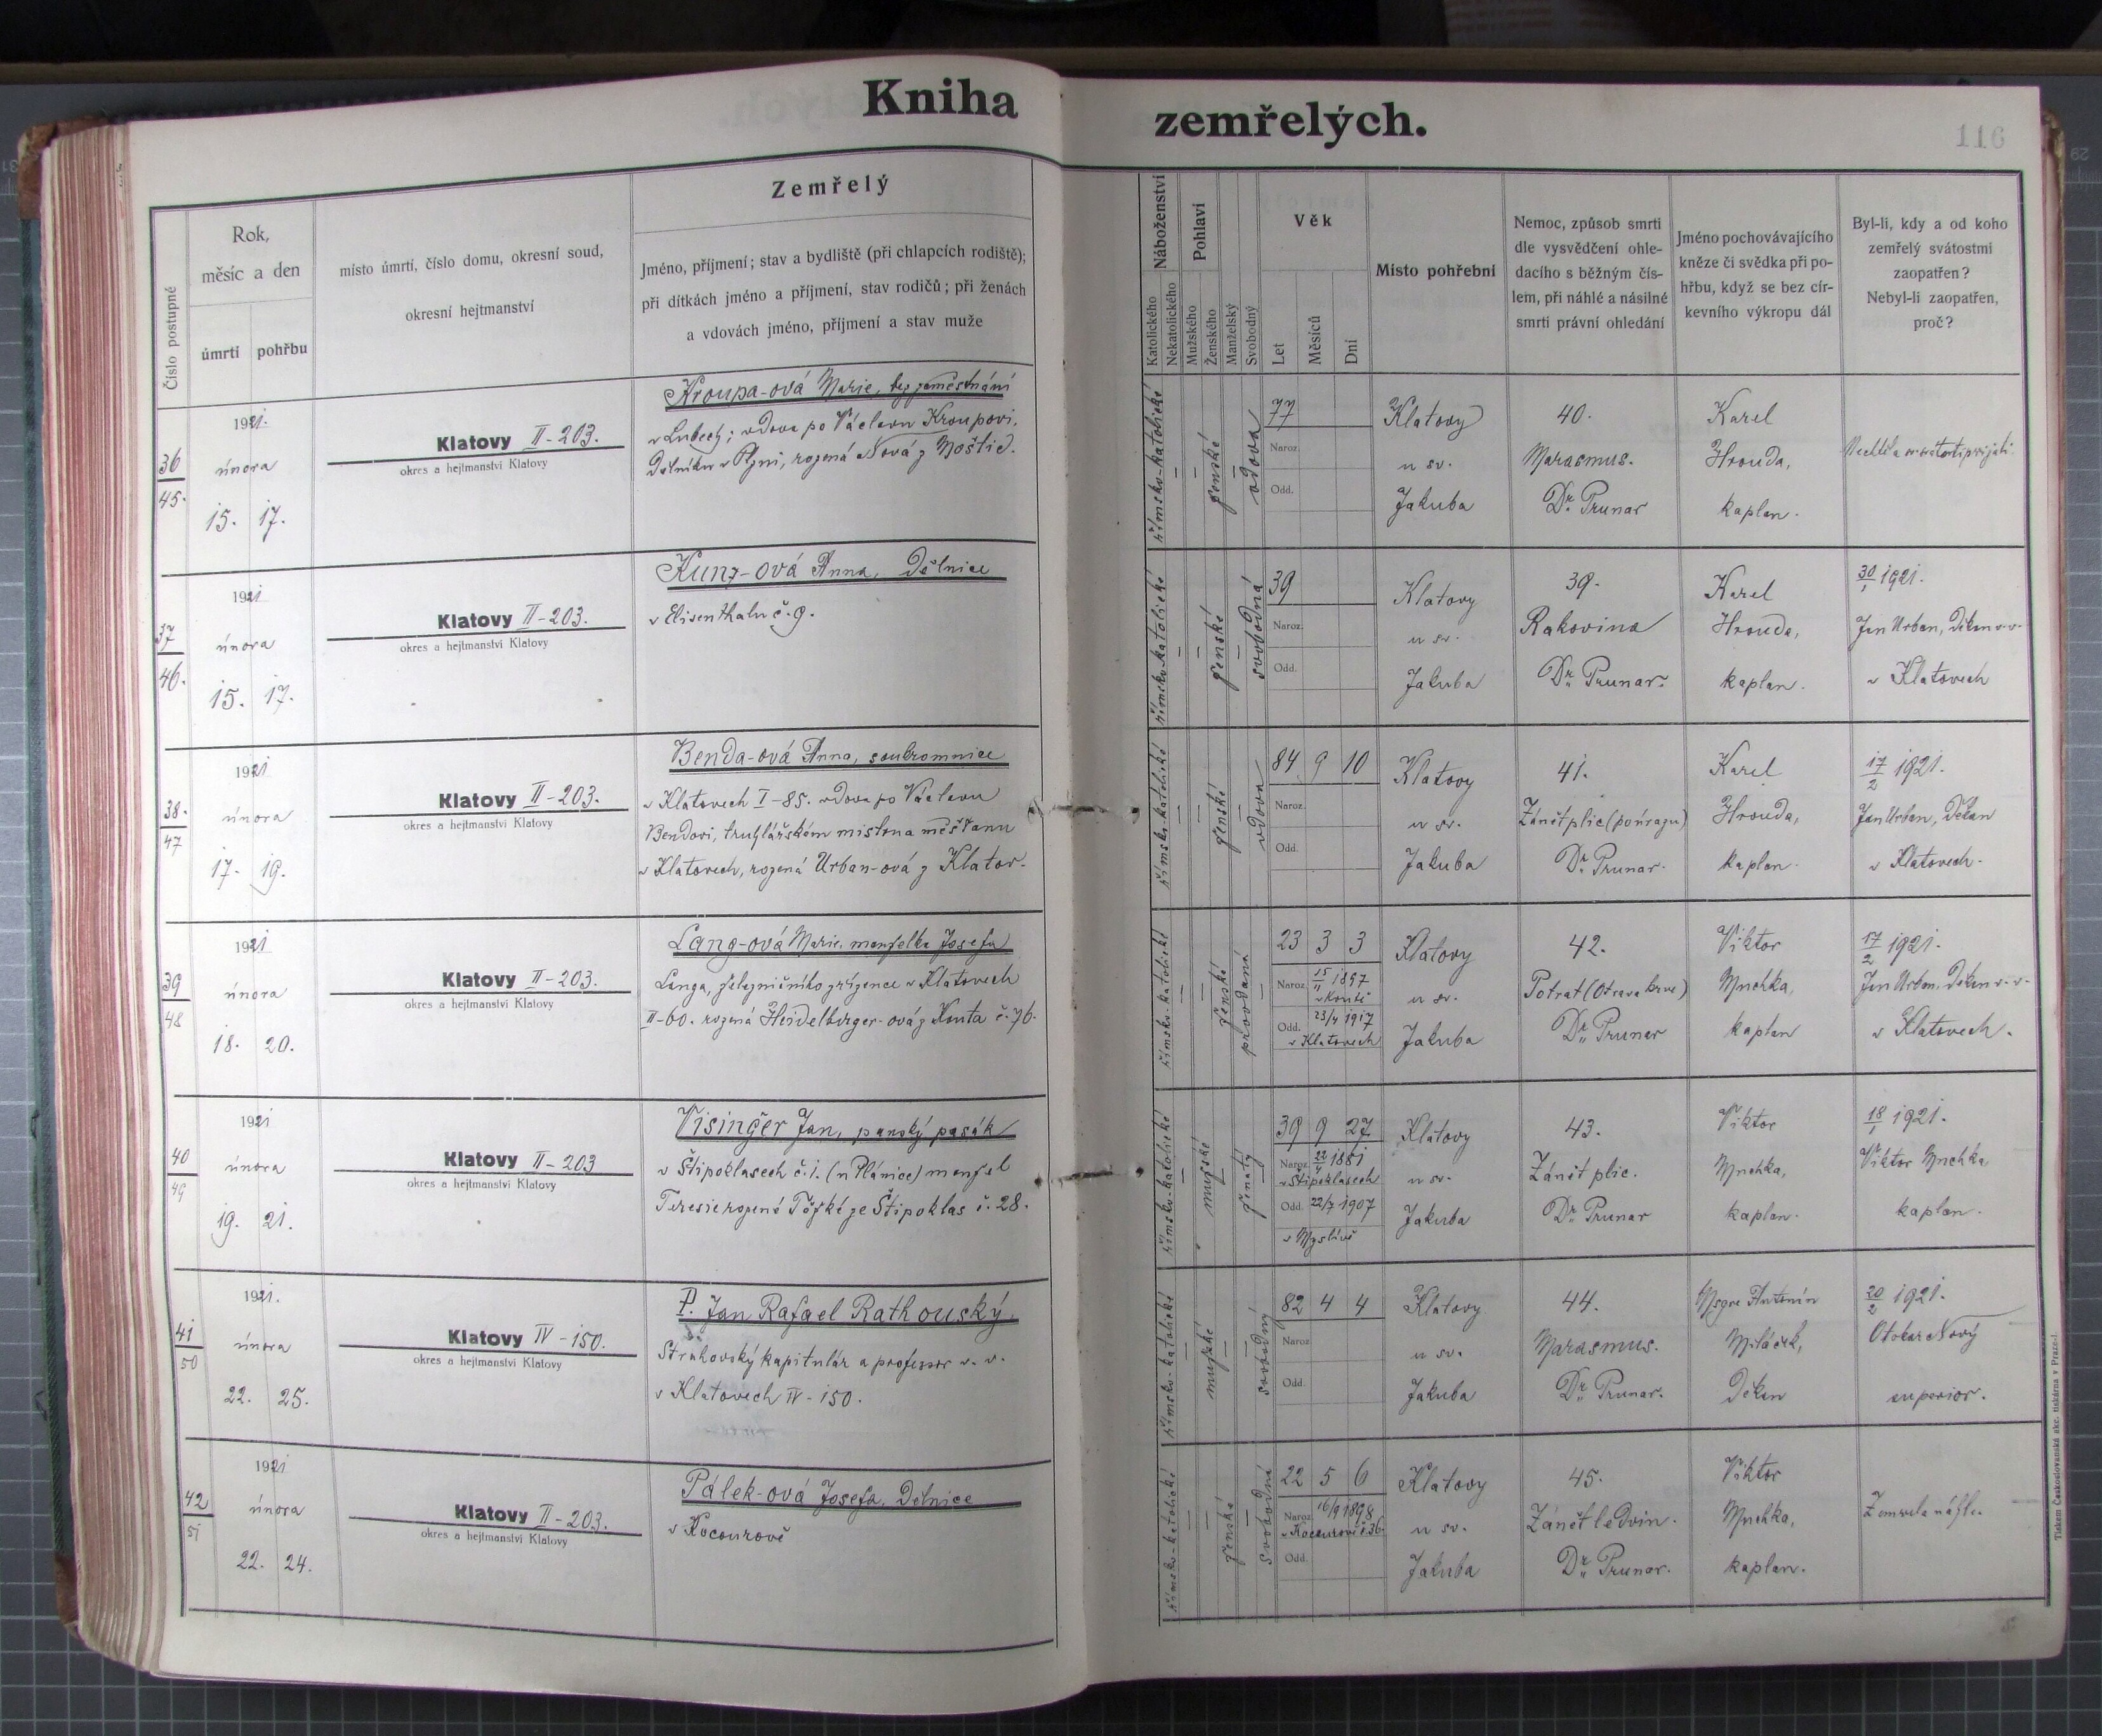 Kniha
zemřelých.
116
Číslo postupné
Rok,
měsíc a den
úmrtí pohřbu
místo úmrtí, číslo domu, okresní soud,
okresní hejtmanství
Zemřelý
Jméno, příjmení; stav a bydliště (při chlapcích rodiště);
při dítkách jméno a příjmení, stav rodičů; při ženách
a vdovách jméno, příjmení a stav muže
Náboženství
Katolického
Nekatolického
Pohlaví
Mužského
Ženského
Manželský
Svobodný
Věk
Let
Měsíců
Dní
Místo pohřební
Nemoc, způsob smrti
dle vysvědčení ohle-
dacího s běžným čís-
lem, při náhlé a násilné
smrti právní ohledání
Jméno pochovávajícího
kněze či svědka při po-
hřbu, když se bez cír-
kevního výkropu dál
Byl-li, kdy a od koho
zemřelý svátostmi
zaopatřen?
Nebyl-li zaopatřen,
proč?
36
45.
1921.
února
15. 17.
Klatovy II-203.
okres a hejtmanství Klatovy
Kroupa-ová Marie, bez zaměstnání
v Lubech; vdova po Václavu Kroupovi,
dělníku v Plzni, rozená Nová z Boštic.
římsko-katolické
ženské
vdova
77
Naroz.
Odd.
Klatovy
u sv.
Jakuba
40.
Marasmus.
Dr. Prunar
Karel
Hrouda,
kaplan.
Nechtěla sv. svátosti přijati.
37
46.
1921
února
15. 17.
Klatovy II-203.
okres a hejtmanství Klatovy
Kunz-ová Anna, dělnice
v Elisenthalu č. 9.
římsko-katolické
ženské
svobodná
39
Naroz.
Odd.
Klatovy
u sv.
Jakuba
39.
Rakovina
Dr. Prunar.
Karel
Hrouda,
kaplan.
30/1 1921.
Jan Urban, děkan v. v.
v Klatovech
38.
47
1921
února
17. 19.
Klatovy II-203.
okres a hejtmanství Klatovy
Benda-ová Anna, soukromnice
v Klatovech I-85. vdova po Václavu
Bendovi, truhlářském mistru a měšťanu
v Klatovech, rozená Urban-ová z Klatov.
římsko-katolické
ženské
vdova
84 9 10
Naroz.
Odd.
Klatovy
u sv.
Jakuba
41.
Zánět plic
Dr. Prunar.
Karel
Hrouda,
kaplan.
17/2 1921.
Jan Urban, děkan
v Klatovech.
39
48
1921
února
18. 20.
Klatovy II-203.
okres a hejtmanství Klatovy
Lang-ová Marie, manželka Josefa
Langa, železničního zřízence v Klatovech
II-60. rozená Heidelberger-ová z Kouta č. 76.
římsko-katolické
ženské
provdaná
23 3 3
Naroz. 15/11 1897
v Koutě
Odd. 23/4 1917
v Klatovech
Klatovy
u sv.
Jakuba
42.
Potrat (Otrava krve)
Dr. Prunar
Viktor
Muchka,
kaplan
17/2 1921.
Jan Urban, děkan v. v.
v Klatovech.
40
49
1921
února
19. 21.
Klatovy II-203
okres a hejtmanství Klatovy
Visingěr Jan, panský pasák
v Štipoklasech č. 1. (u Plánice) manžel
Teresie rozené Tóžké ze Štipoklas č. 28.
římsko-katolické
mužské
ženatý
39 9 27
Naroz. 22/4 1881
v Štipoklasech
Odd. 22/7 1907
v Myslívě
Klatovy
u sv.
Jakuba
43.
Zánět plic.
Dr. Prunar
Viktor
Muchka,
kaplan.
18/1 1921.
Viktor Muchka
kaplan.
41
50
1921.
února
22. 25.
Klatovy IV-150.
okres a hejtmanství Klatovy
P. Jan Rafael Rathouský,
Strahovský kapitulár a professor v. v.
v Klatovech IV-150.
římsko-katolické
mužské
svobodný
82 4 4
Naroz.
Odd.
Klatovy
u sv.
Jakuba
44.
Marasmus.
Dr. Prunar.
Msgre Antonín
Miláček,
děkan
20/2 1921.
Otokar Nový
superior.
42
51
1921
února
22. 24.
Klatovy II-203.
okres a hejtmanství Klatovy
Pálek-ová Josefa, dělnice
v Kocourově
římsko-katolické
ženské
svobodná
22 5 6
Naroz. 16/9 1898
v Kocourově č. 36.
Odd.
Klatovy
u sv.
Jakuba
45.
Zánět ledvin.
Dr. Prunar.
Viktor
Muchka,
kaplan.
Zemřela náhle.
Tiskem Českoslovanská akc. tiskárna v Praze-I.